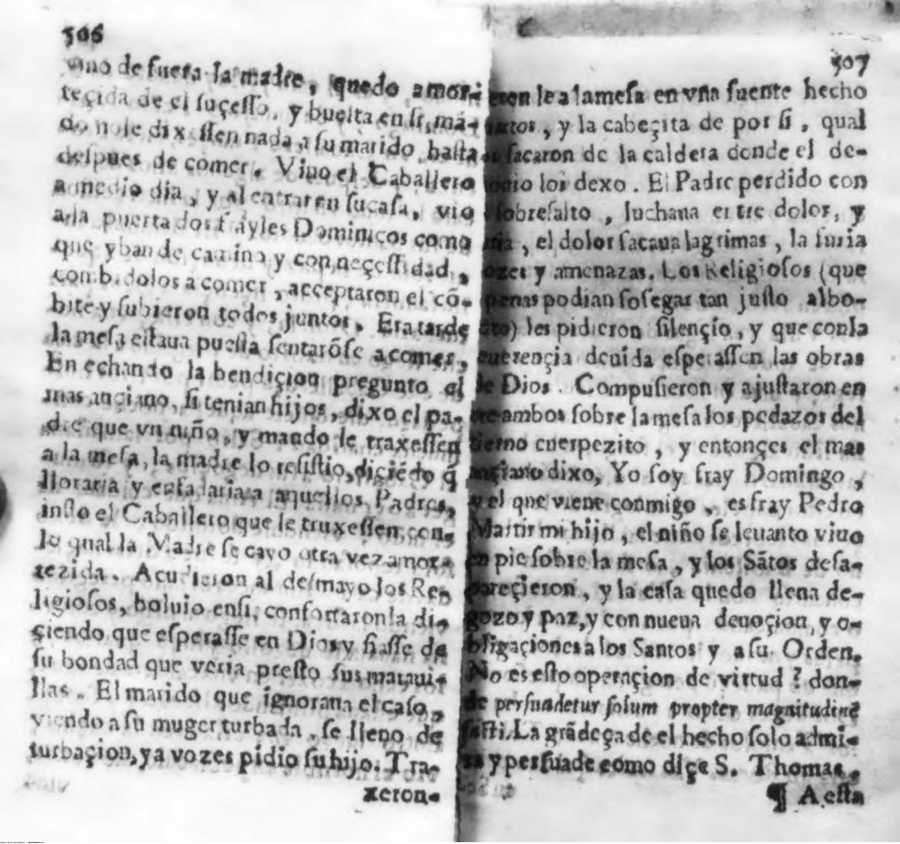 306
vino de fuera la madre, quedo amor-
teçida de el suçesso, y buelta en si, mã-
do no le dixessen nada a su marido hasta
despues de comer. Vino el Caballero
a medio dia, y al entrar en su casa, vio
a la puerta dos frayles Dominicos como
que yban de camino y con neçessidad,
combidolos a comer, acceptaron el cõ-
bite y subieron todos juntos. Era tarde
la mesa estaua puesta sentarõse a comer,
En echando la bendiçion pregunto el
mas ançiano, si tenian hijos, dixo el pa-
dre que vn niño, y mando le traxessen
a la mesa, la madre lo resistio, diçiẽdo q̃
lloraria y enfadaria a aquellos Padres,
insto el Caballero que le truxessen, con
lo qual la Madre se cayo otra vez amor-
tezida. Acudieron al desmayo los Re-
ligiosos, boluio en si, confortaronla di-
çiendo que esperasse en Dios y fiasse de
su bondad que veria presto sus maraui-
llas. El marido que ignoraua el caso,
viendo a su muger turbada, se lleno de
turbaçion, y a vozes pidio su hijo. Tra-
xeron-
307
xeron le a la mesa en vna fuente hecho
, y la cabeçita de por si, qual
sacaron de la caldera donde el de-
monio los dexo. El Padre perdido con
sobresalto, luchaua entre dolor, y
furia, el dolor sacaua lagrimas, la furia
vozes y amenazas. Los Religiosos (que
apenas podian sosegar tan justo albo-
roto) les pidieron silençio, y que con la
reuerençia deuida esperassen las obras
de Dios. Compusieron y ajustaron en
tre ambos sobre la mesa los pedazos del
tierno cuerpezito, y entonçes el mas
ançiano dixo, Yo soy fray Domingo,
y el que viene conmigo, es fray Pedro
Martir mi hijo, el niño se leuanto viuo
en pie sobre la mesa, y los Sãtos desa-
pareçieron, y la casa quedo llena de-
gozo y paz, y con nueua deuoçion, y o-
bligaçiones a los Santos y a su Orden.
No es esto operaçion de virtud? don-
de persuadetur solum propter magnitudinẽ
facti. La grãdeça de el hecho solo admi-
ra y persuade como diçe S. Thomas.
¶ A esta